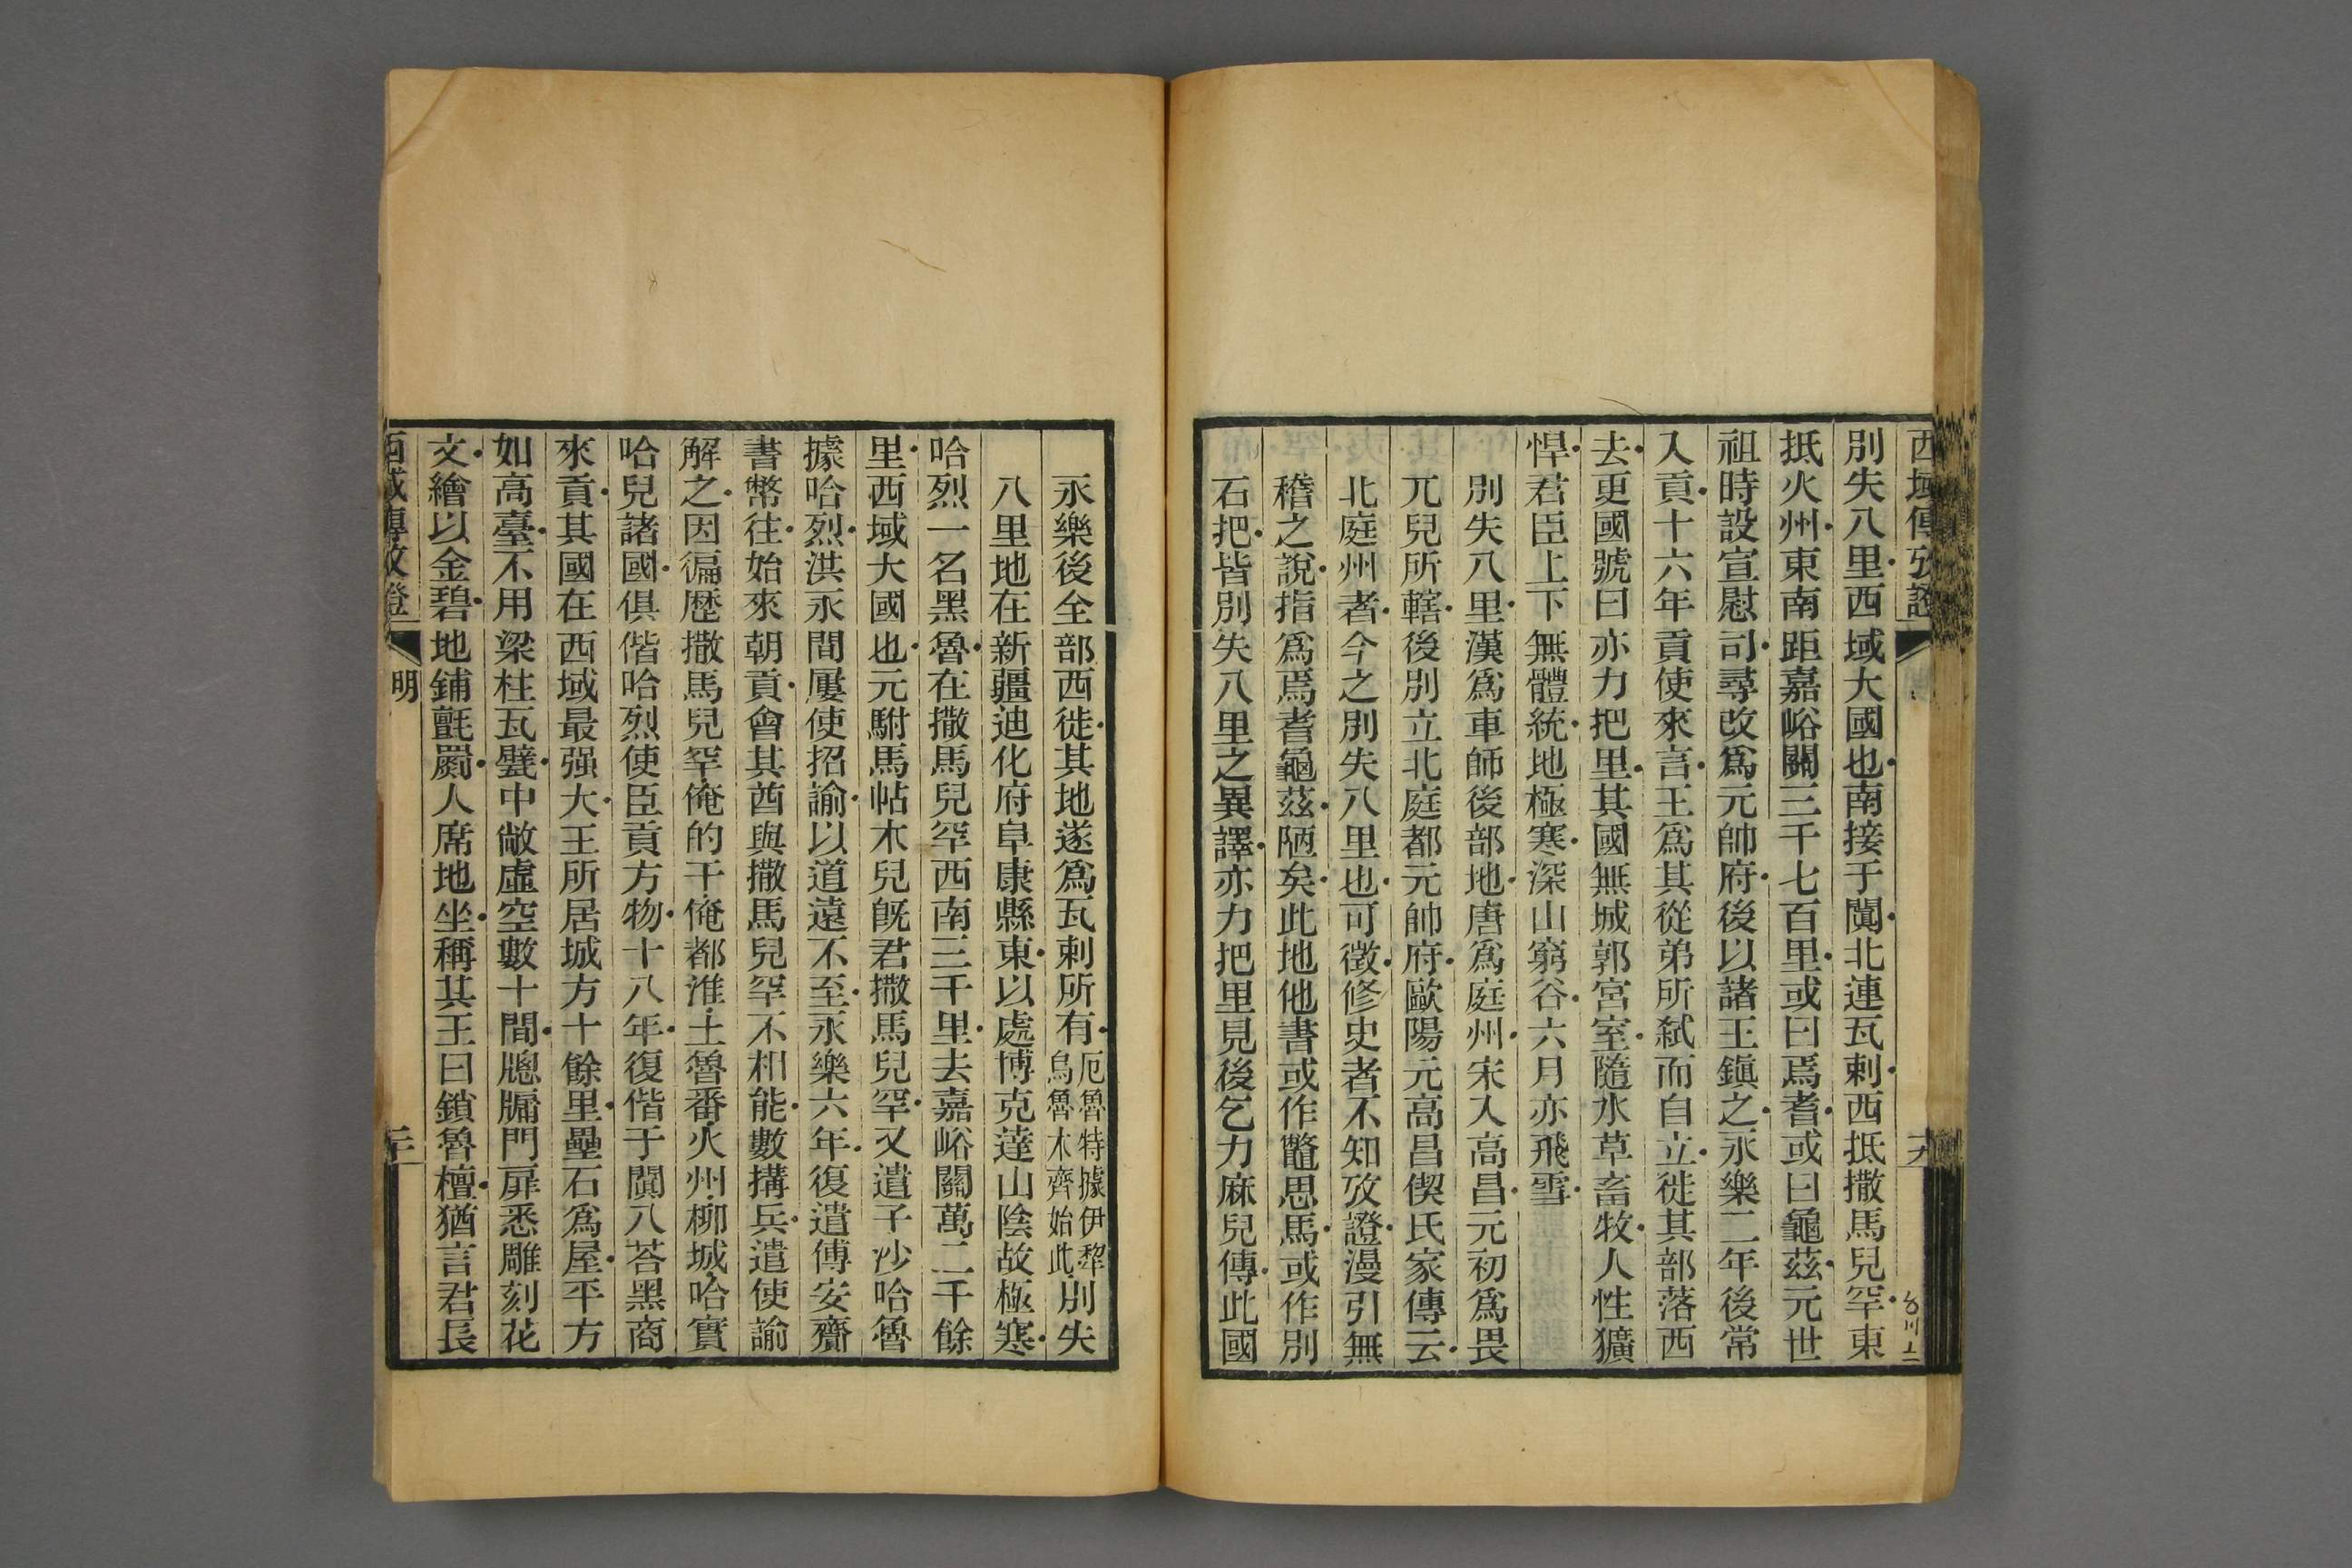 西域傳攷證
十九
別失八里西域大國也南接于闐北連瓦剌西抵撒馬兒罕東
抵火州東南距嘉峪關三千七百里或曰焉耆或曰龜茲元世
祖時設宣慰司尋改爲元帥府後以諸王鎭之永樂二年後常
入貢十六年貢使來言王爲其從弟所弒而自立徙其部落西
去更國號曰亦力把里其國無城郭宮室隨水草畜牧人性獷
悍君臣上下無體統地極寒深山窮谷六月亦飛雪
別失八里漢爲車師後部地唐爲庭州宋入高昌元初爲畏
兀兒所轄後別立北庭都元帥府歐陽元高昌偰氏家傳云
北庭州者今之別失八里也可徵修史者不知攷證漫引無
稽之說指爲焉耆龜茲陋矣此地他書或作鼈思馬或作別
石把皆別失八里之異譯亦力把里見後乞力麻兒傳此國
永樂後全部西徙其地遂爲瓦剌所有厄魯特據伊犂
烏魯木齊始此別失
八里地在新疆迪化府阜康縣東以處博克達山陰故極寒
哈烈一名黑魯在撒馬兒罕西南三千里去嘉峪關萬二千餘
里西域大國也元駙馬帖木兒旣君撒馬兒罕又遣子沙哈魯
據哈烈洪永間屢使招諭以道遠不至永樂六年復遣傅安齎
書幣往始來朝貢會其酋與撒馬兒罕不相能數搆兵遣使諭
解之因徧歷撒馬兒罕俺的干俺都淮土魯番火州柳城哈實
哈兒諸國俱偕哈烈使臣貢方物十八年復偕于闐八荅黑商
來貢其國在西域最强大王所居城方十餘里壘石爲屋平方
如高臺不用梁柱瓦甓中敞虛空數十間牕牖門扉悉雕刻花
文繪以金碧地鋪氈罽人席地坐稱其王曰鎖魯檀猶言君長
西域傳攷證
明
二十